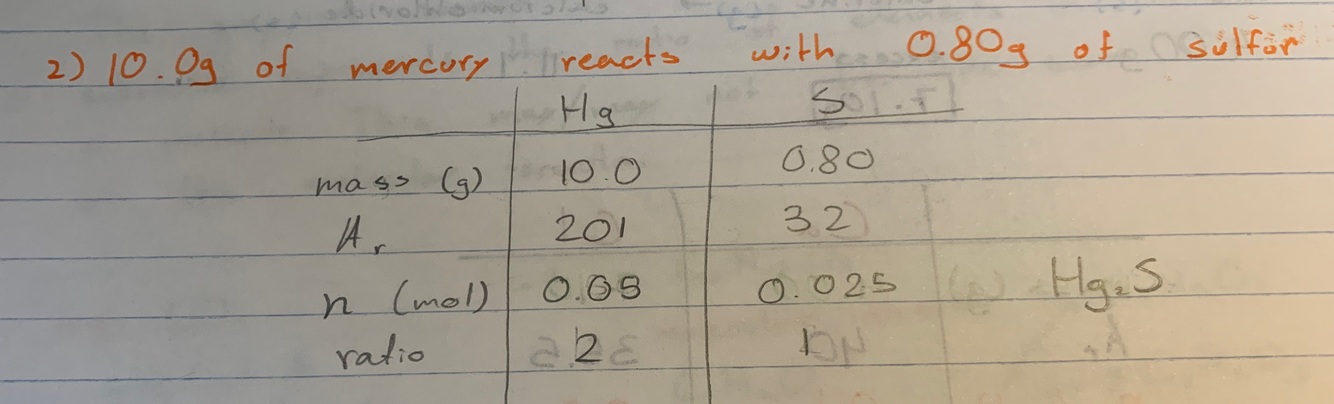 2) 10.0g of mercury reacts with 0.80g of sulfur
Hg S
mass (g) 10.0 0.80
Ar 201 32
n (mol) 0.05 0.025 Hg₂S
ratio 2 1